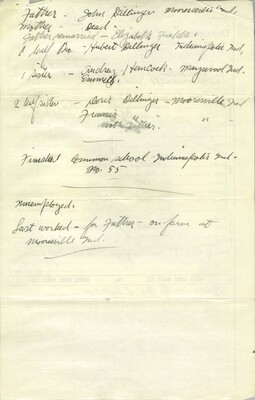 Father - John Dillinger Mooresville Ind.
Mother - Dead.
Father remarried - Elizabeth Fields
1 half Bro. - Hubert Dillinger Indianapolis Ind.
1 sister - Audrey Hancock - Maywood Ind.
Emmett
2 half sister - Doris Dillinger - Mooresville Ind
Frances " " "
with Father.
Finished Common school Indianapolis Ind.
No. 55
Unemployed.
Last worked - for Father - on farm at
Mooresville Ind.